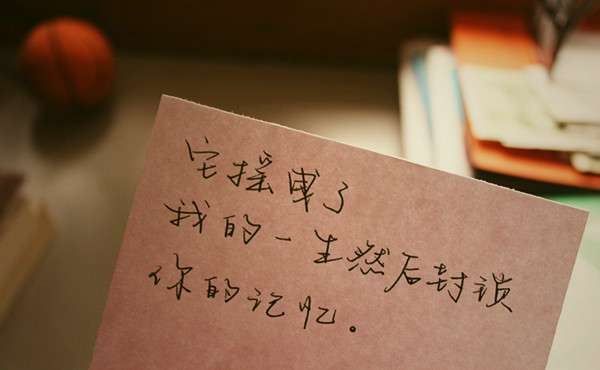 它摇曳了
我的一生然后封锁
你的记忆。